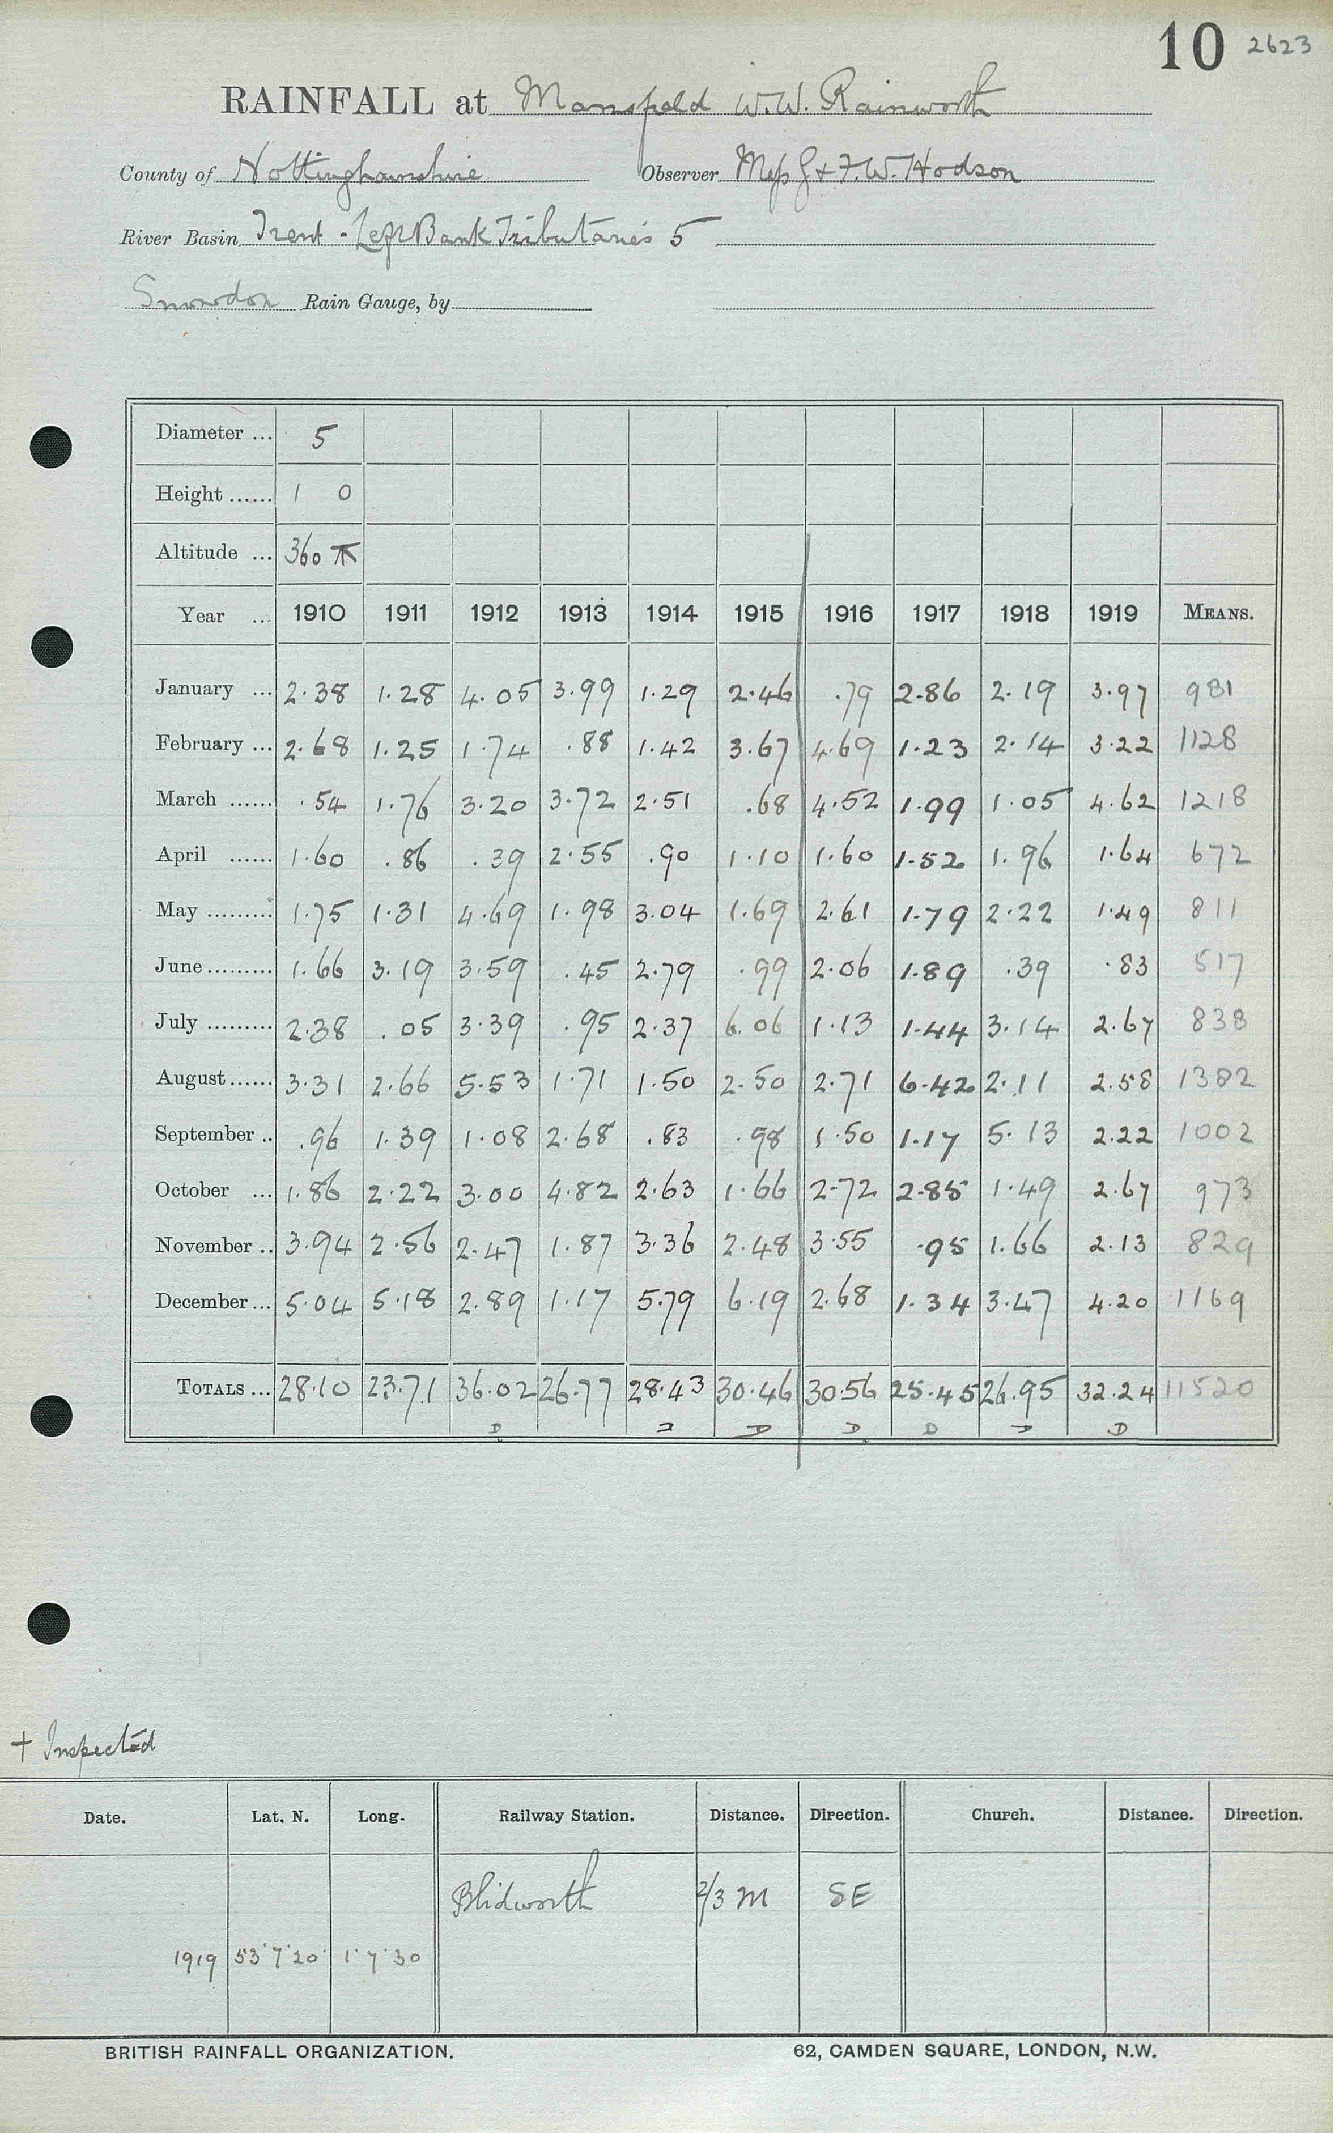 10 2623
RAINFALL at Mansfield W.W. Rainworth
County of Nottinghamshire Observer Mess J & F.W. Hodson
River Basin Trent - Left Bank Tributaries 5
Snowdon Rain Gauge, by
Diameter ... 5
Height ...... 1 0
Altitude ... 360
Year ... 1910 1911 1912 1913 1914 1915 1916 1917 1918 1919 MEANS.
January ... 2.38 1.28 4.05 3.99 1.29 2.46 .79 2.86 2.19 3.97 981
February ... 2.68 1.25 1.74 .88 1.42 3.67 4.69 1.23 2.14 3.22 1128
March ...... .54 1.76 3.20 3.72 2.51 .68 4.52 1.99 1.05 4.62 1218
April ...... 1.60 .86 .39 2.55 .90 1.10 1.60 1.52 1.96 1.64 672
May ......... 1.75 1.31 4.69 1.98 3.04 1.69 2.61 1.79 2.22 1.49 811
June ......... 1.66 3.19 3.59 .45 2.79 .99 2.06 1.89 .39 .83 517
July ......... 2.38 .05 3.39 .95 2.37 6.06 1.13 1.44 3.14 2.67 838
August ...... 3.31 2.66 5.53 1.71 1.50 2.50 2.71 6.42 2.11 2.58 1382
September .. .96 1.39 1.08 2.68 .83 .98 1.50 1.17 5.13 2.22 1002
October ... 1.86 2.22 3.00 4.82 2.63 1.66 2.72 2.85 1.49 2.67 973
November .. 3.94 2.56 2.47 1.87 3.36 2.48 3.55 .95 1.66 2.13 829
December ... 5.04 5.18 2.89 1.17 5.79 6.19 2.68 1.34 3.47 4.20 1169
TOTALS ... 28.10 23.71 36.02 26.77 28.43 30.46 30.56 25.45 26.95 32.24 11520
D D D D D D D
+ Inspected
Date. Lat. N. Long. Railway Station. Distance. Direction. Church. Distance. Direction.
Blidworth 2/3 m SE
1919 53°7'20" 1°7'30
BRITISH RAINFALL ORGANIZATION. 62, CAMDEN SQUARE, LONDON, N.W.